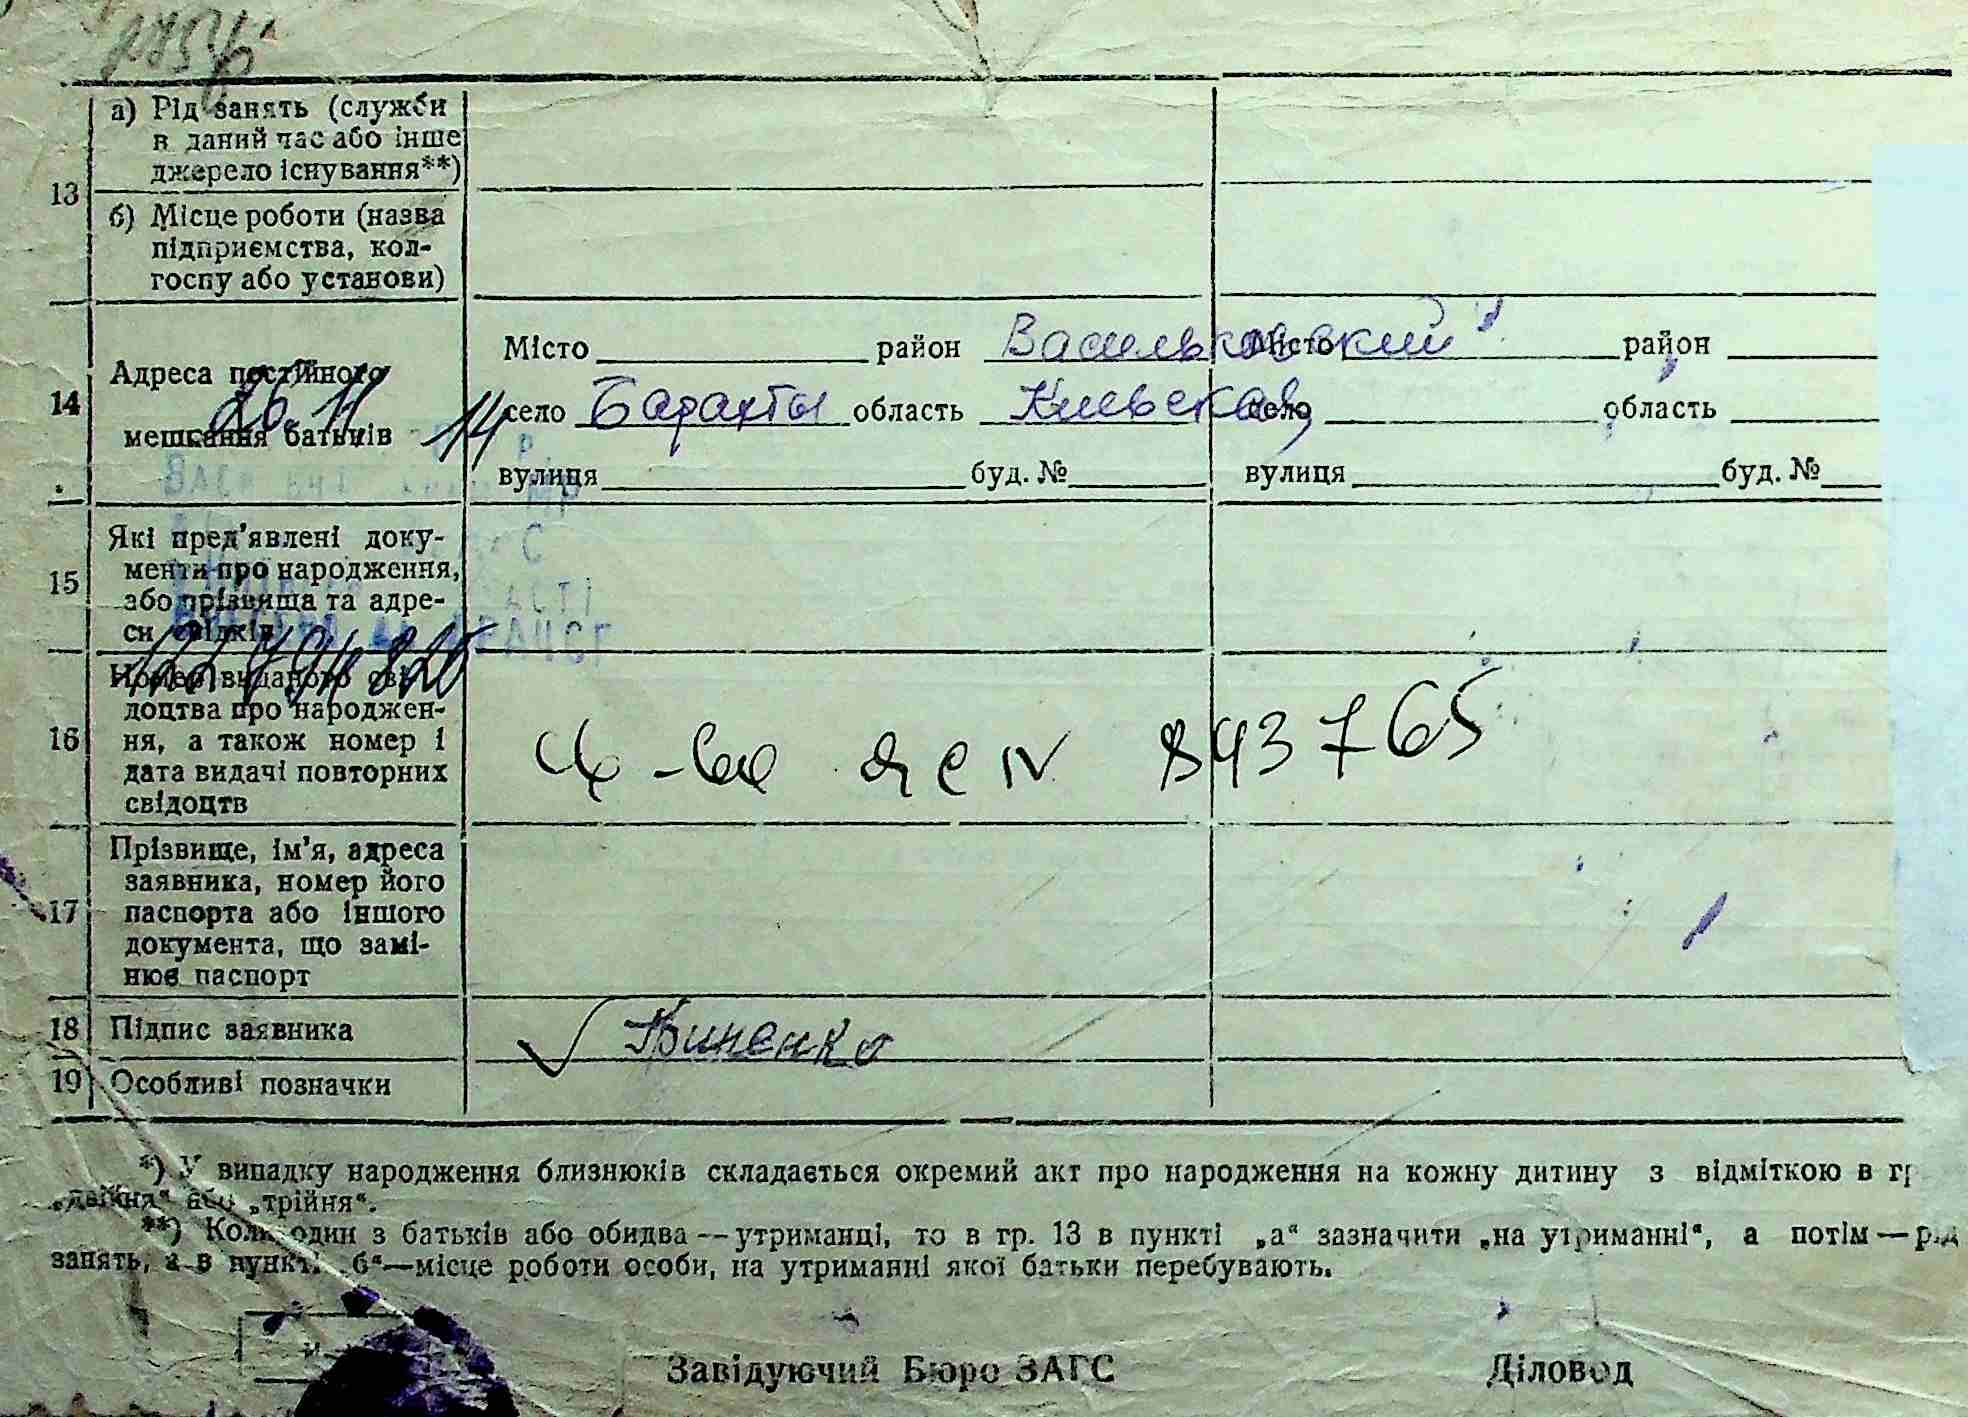 13
а) Рід занять (служби
в даний час або інше
джерело існування**)
б) Місце роботи (назва
підприємства, кол-
госпу або установи)
14
Адреса постійного
мешкання батьків
26.11 14
Місто район Васильковский
село Барахты область Киевская
вулиця буд. №
Місто район
село область
вулиця буд. №
15
Які пред'явлені доку-
менти про народження,
або прізвища та адре-
си свідків
16
Номер виданого сві-
доцтва про народжен-
ня, а також номер і
дата видачі повторних
свідоцтв
843765
17
Прізвище, ім'я, адреса
заявника, номер його
паспорта або іншого
документа, що замі-
нює паспорт
18 Підпис заявника
19 Особливі позначки
*) У випадку народження близнюків складається окремий акт про народження на кожну дитину з відміткою в гр
„двійня“ або „трійня“.
**) Коли один з батьків або обидва — утриманці, то в гр. 13 в пункті „а“ зазначити „на утриманні“, а потім — рід
занять, а в пункті „б“—місце роботи особи, на утриманні якої батьки перебувають.
Завідуючий Бюро ЗАГС Діловод